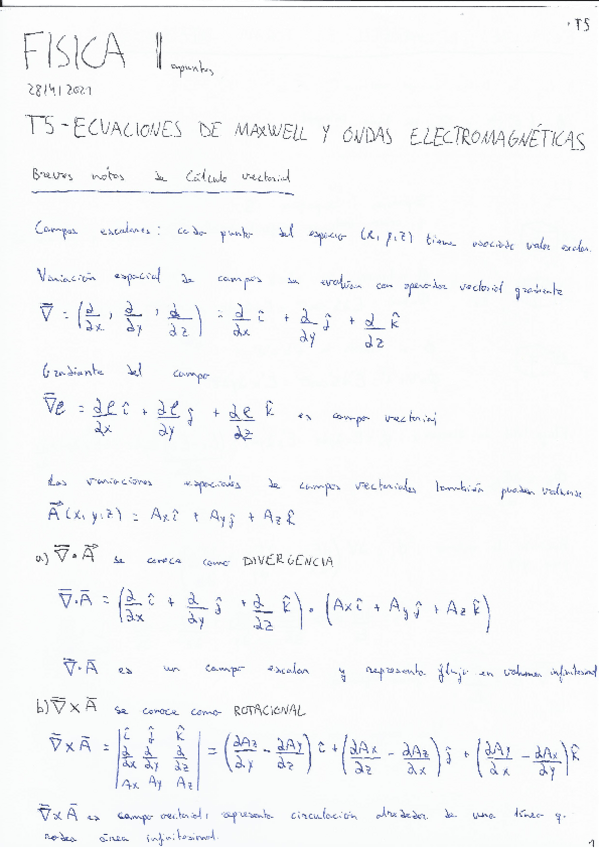 · T5
FISICA II apuntes
28/4/2021
T5 - ECUACIONES DE MAXWELL Y ONDAS ELECTROMAGNÉTICAS
Breves notas de Cálculo vectorial
Campos escalares: cada punto del espacio (x, y, z) tiene asociado valor escalar.
Variación espacial de campos se evalúan con operador vectorial gradiente
∇⃗ = (∂/∂x, ∂/∂y, ∂/∂z) = ∂/∂x î + ∂/∂y ĵ + ∂/∂z k̂
Gradiente del campo
∇⃗φ = ∂φ/∂x î + ∂φ/∂y ĵ + ∂φ/∂z k̂ es campo vectorial
Las variaciones espaciales de campos vectoriales también pueden
A⃗(x, y, z) = Ax î + Ay ĵ + Az k̂
a) ∇⃗ · A⃗ se conoce como DIVERGENCIA
∇⃗ · A⃗ = (∂/∂x î + ∂/∂y ĵ + ∂/∂z k̂) · (Ax î + Ay ĵ + Az k̂)
∇⃗ · A⃗ es un campo escalar y representa flujo en volumen infinitesimal
b) ∇⃗ × A⃗ se conoce como ROTACIONAL
∇⃗ × A⃗ = | î ĵ k̂ ; ∂/∂x ∂/∂y ∂/∂z ; Ax Ay Az | = (∂Az/∂y - ∂Ay/∂z) î + (∂Ax/∂z - ∂Az/∂x) ĵ + (∂Ay/∂x - ∂Ax/∂y) k̂
∇⃗ × A⃗ es campo vectorial, representa circulación alrededor de una línea q.
rodea área infinitesimal.
1